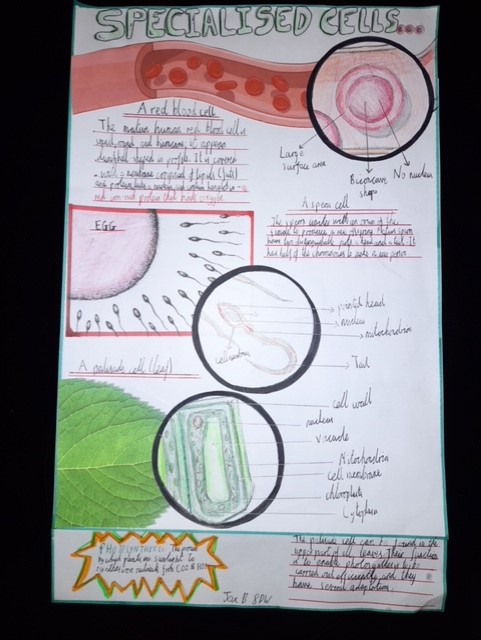 SPECIALISED CELLS...
A red blood cell
The mature human red blood cell is
small, round and biconcave; it appears
dumbbell shaped in profile. It is covered
with a membrane composed of lipids (fats)
red iron rich protein that binds oxygen.
Large
surface area
Biconcave
shape
No nucleus
A sperm cell
The sperm unites with an ovum of the
female to produce a new offspring. Mature sperm
have two distinguishable parts, a head and a tail. It
EGG
nucleus
mitochondrion
Tail
A palisade cell (leaf)
cell wall
nucleus
vacuole
Mitochondria
cell membrane
chloroplasts
Cytoplasm
PHOTOSYNTHESIS: The process
by which plants use sunlight to
from CO2 & H2O
The palisade cell can be found in the
upper part of all leaves. Their function
is to enable photosynthesis to be
carried out efficiently and they
have several adaptations.
8DW